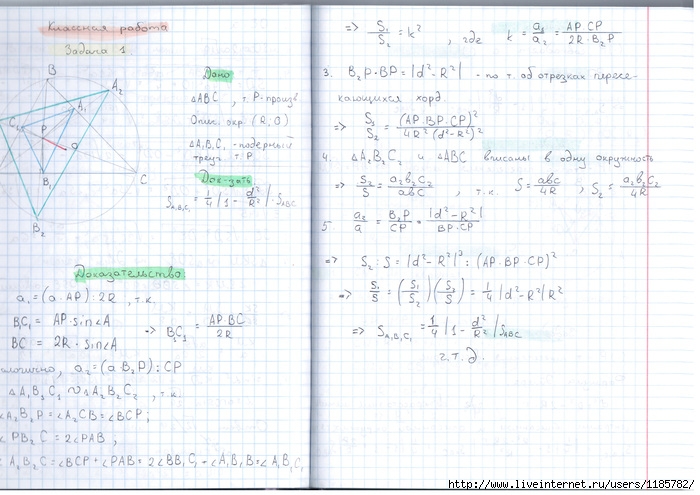 Классная работа
Задача 1.
B
A₂
A₁
C₁
P
O
B₁
C
B₂
Дано
△ABC, т. P - произв.
Опис. окр. (R; O)
△A₁B₁C₁ - подерный
треуг. т. P
Док-зать
S_A₁B₁C₁ = 1/4 |1 - d²/R²| · S_ABC
Доказательство
a₁ = (a · AP) : 2R, т.к.
B₁C₁ = AP · sin∠A
BC = 2R · sin∠A
=> B₁C₁ = AP·BC / 2R
алогично, a₂ = (a · B₂P) : CP
△A₁B₁C₁ ∾ △A₂B₂C₂, т.к.
∠A₂B₂P = ∠A₂CB = ∠BCP;
∠PB₂C = ∠PAB;
∠A₂B₂C = ∠BCP + ∠PAB = ∠BB₁C₁ + ∠A₁B₁B = ∠A₁B₁C₁
=> S₁/S₂ = k², где k = a₁/a₂ = AP·CP / 2R·B₂P
3. B₂P·BP = |d² - R²| - по т. об отрезках пересе-
кающихся хорд.
=> S₁/S₂ = (AP·BP·CP)² / 4R²(d² - R²)²
4. △A₂B₂C₂ и △ABC вписаны в одну окружность
=> S₂/S = a₂b₂c₂ / abc, т.к. S = abc/4R, S₂ = a₂b₂c₂/4R
5 a₂/a = B₂P/CP = |d² - R²| / BP·CP
=> S₂ : S = |d² - R²|³ : (AP·BP·CP)²
=> S₁/S = (S₁/S₂)(S₂/S) = 1/4 |d² - R²|R²
=> S_A₁B₁C₁ = 1/4 |1 - d²/R²| S_ABC
ч.т.д.
http://www.liveinternet.ru/users/1185782/